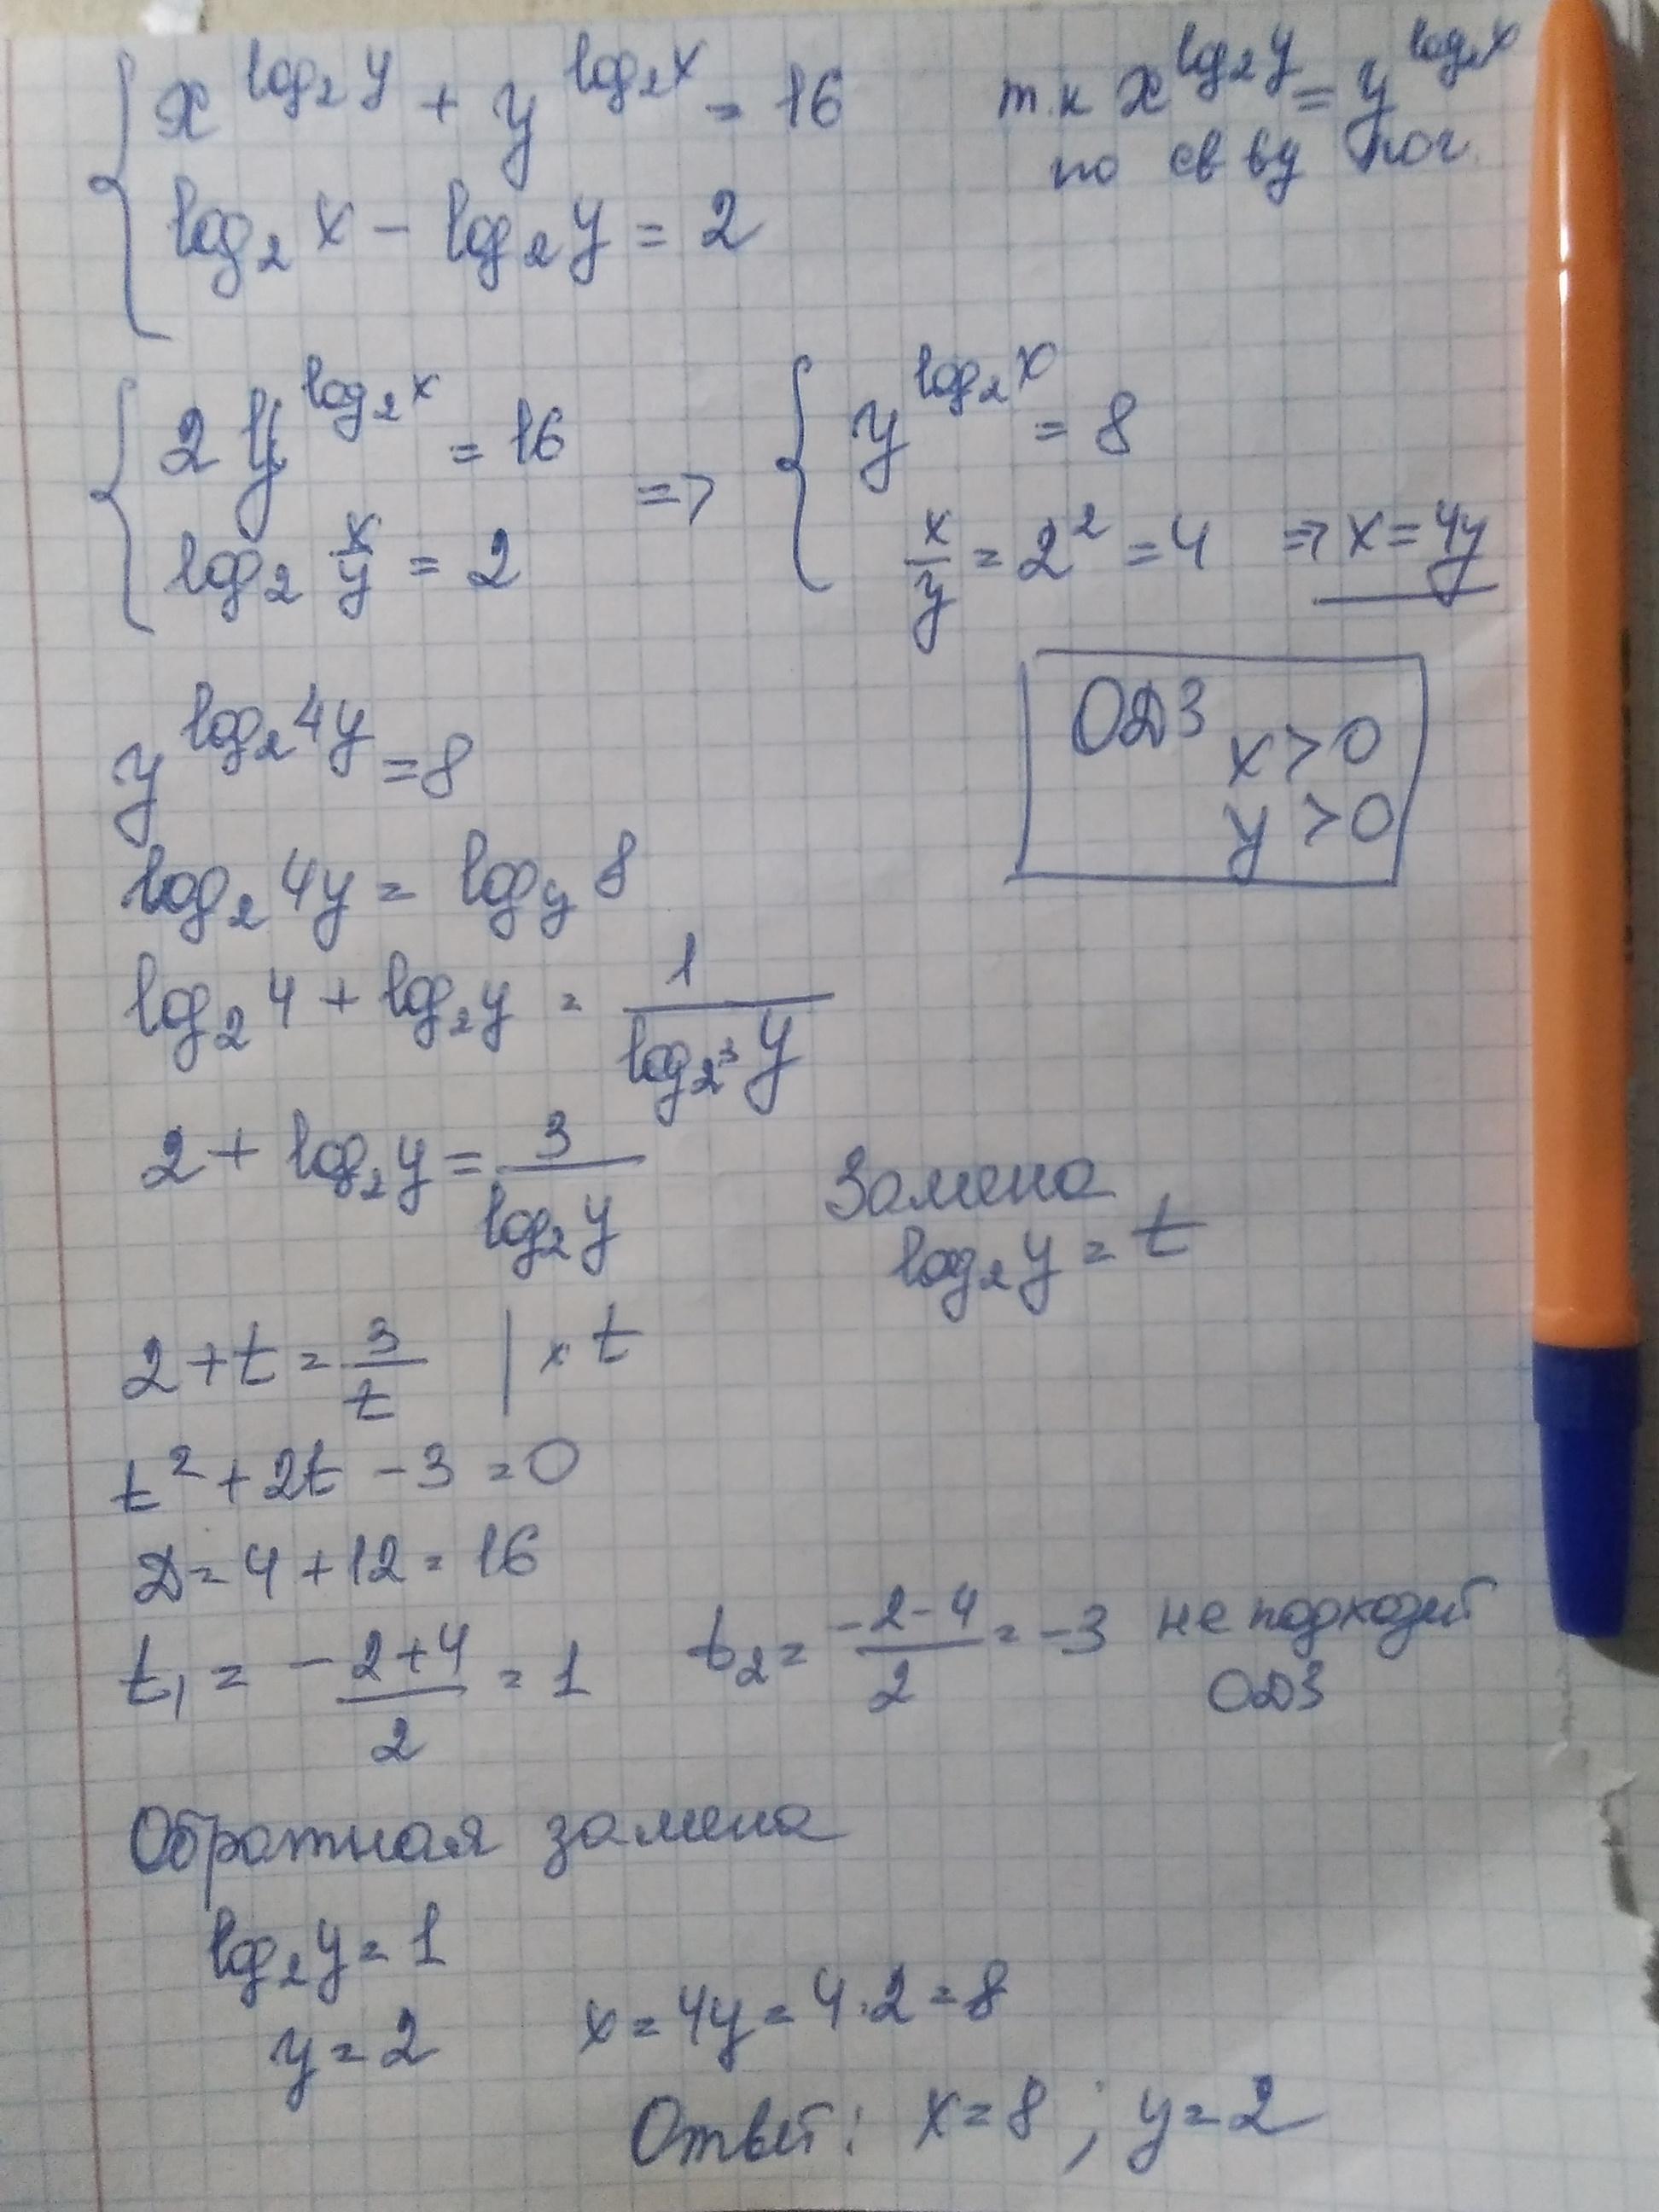 x^{log₂y} + y^{log₂x} = 16 т.к x^{log₂y} = y^{log₂x}
по св ву лог.
log₂x - log₂y = 2
2y^{log₂x} = 16 => y^{log₂x} = 8
log₂ x/y = 2 x/y = 2² = 4 => x = 4y
ОДЗ
x > 0
y > 0
y^{log₂4y} = 8
log₂4y = log_y 8
log₂4 + log₂y = 1/log_{2³}y
2 + log₂y = 3/log₂y Замена
log₂y = t
2 + t = 3/t | × t
t² + 2t - 3 = 0
D = 4 + 12 = 16
t₁ = -2+4/2 = 1 t₂ = -2-4/2 = -3 не подходит
ОДЗ
Обратная замена
log₂y = 1
y = 2 x = 4y = 4·2 = 8
Ответ: x = 8 ; y = 2